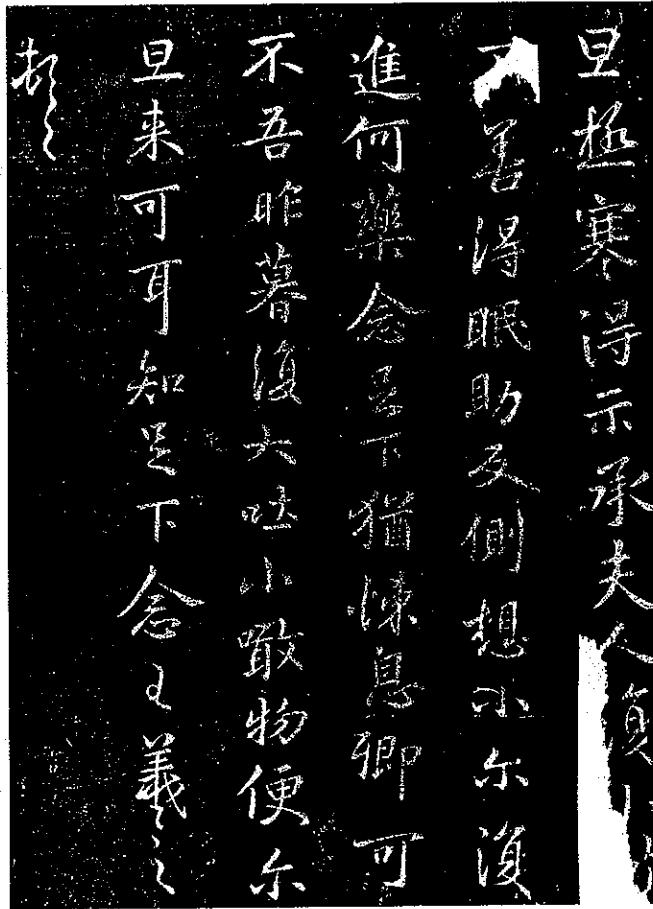 旦極寒得示承夫人復
善得眠助反側想小尔復
進何藥念足下猶悚息卿可
不吾昨暮復大吐小噉物便尔
旦来可耳知足下念王羲之
頓〻